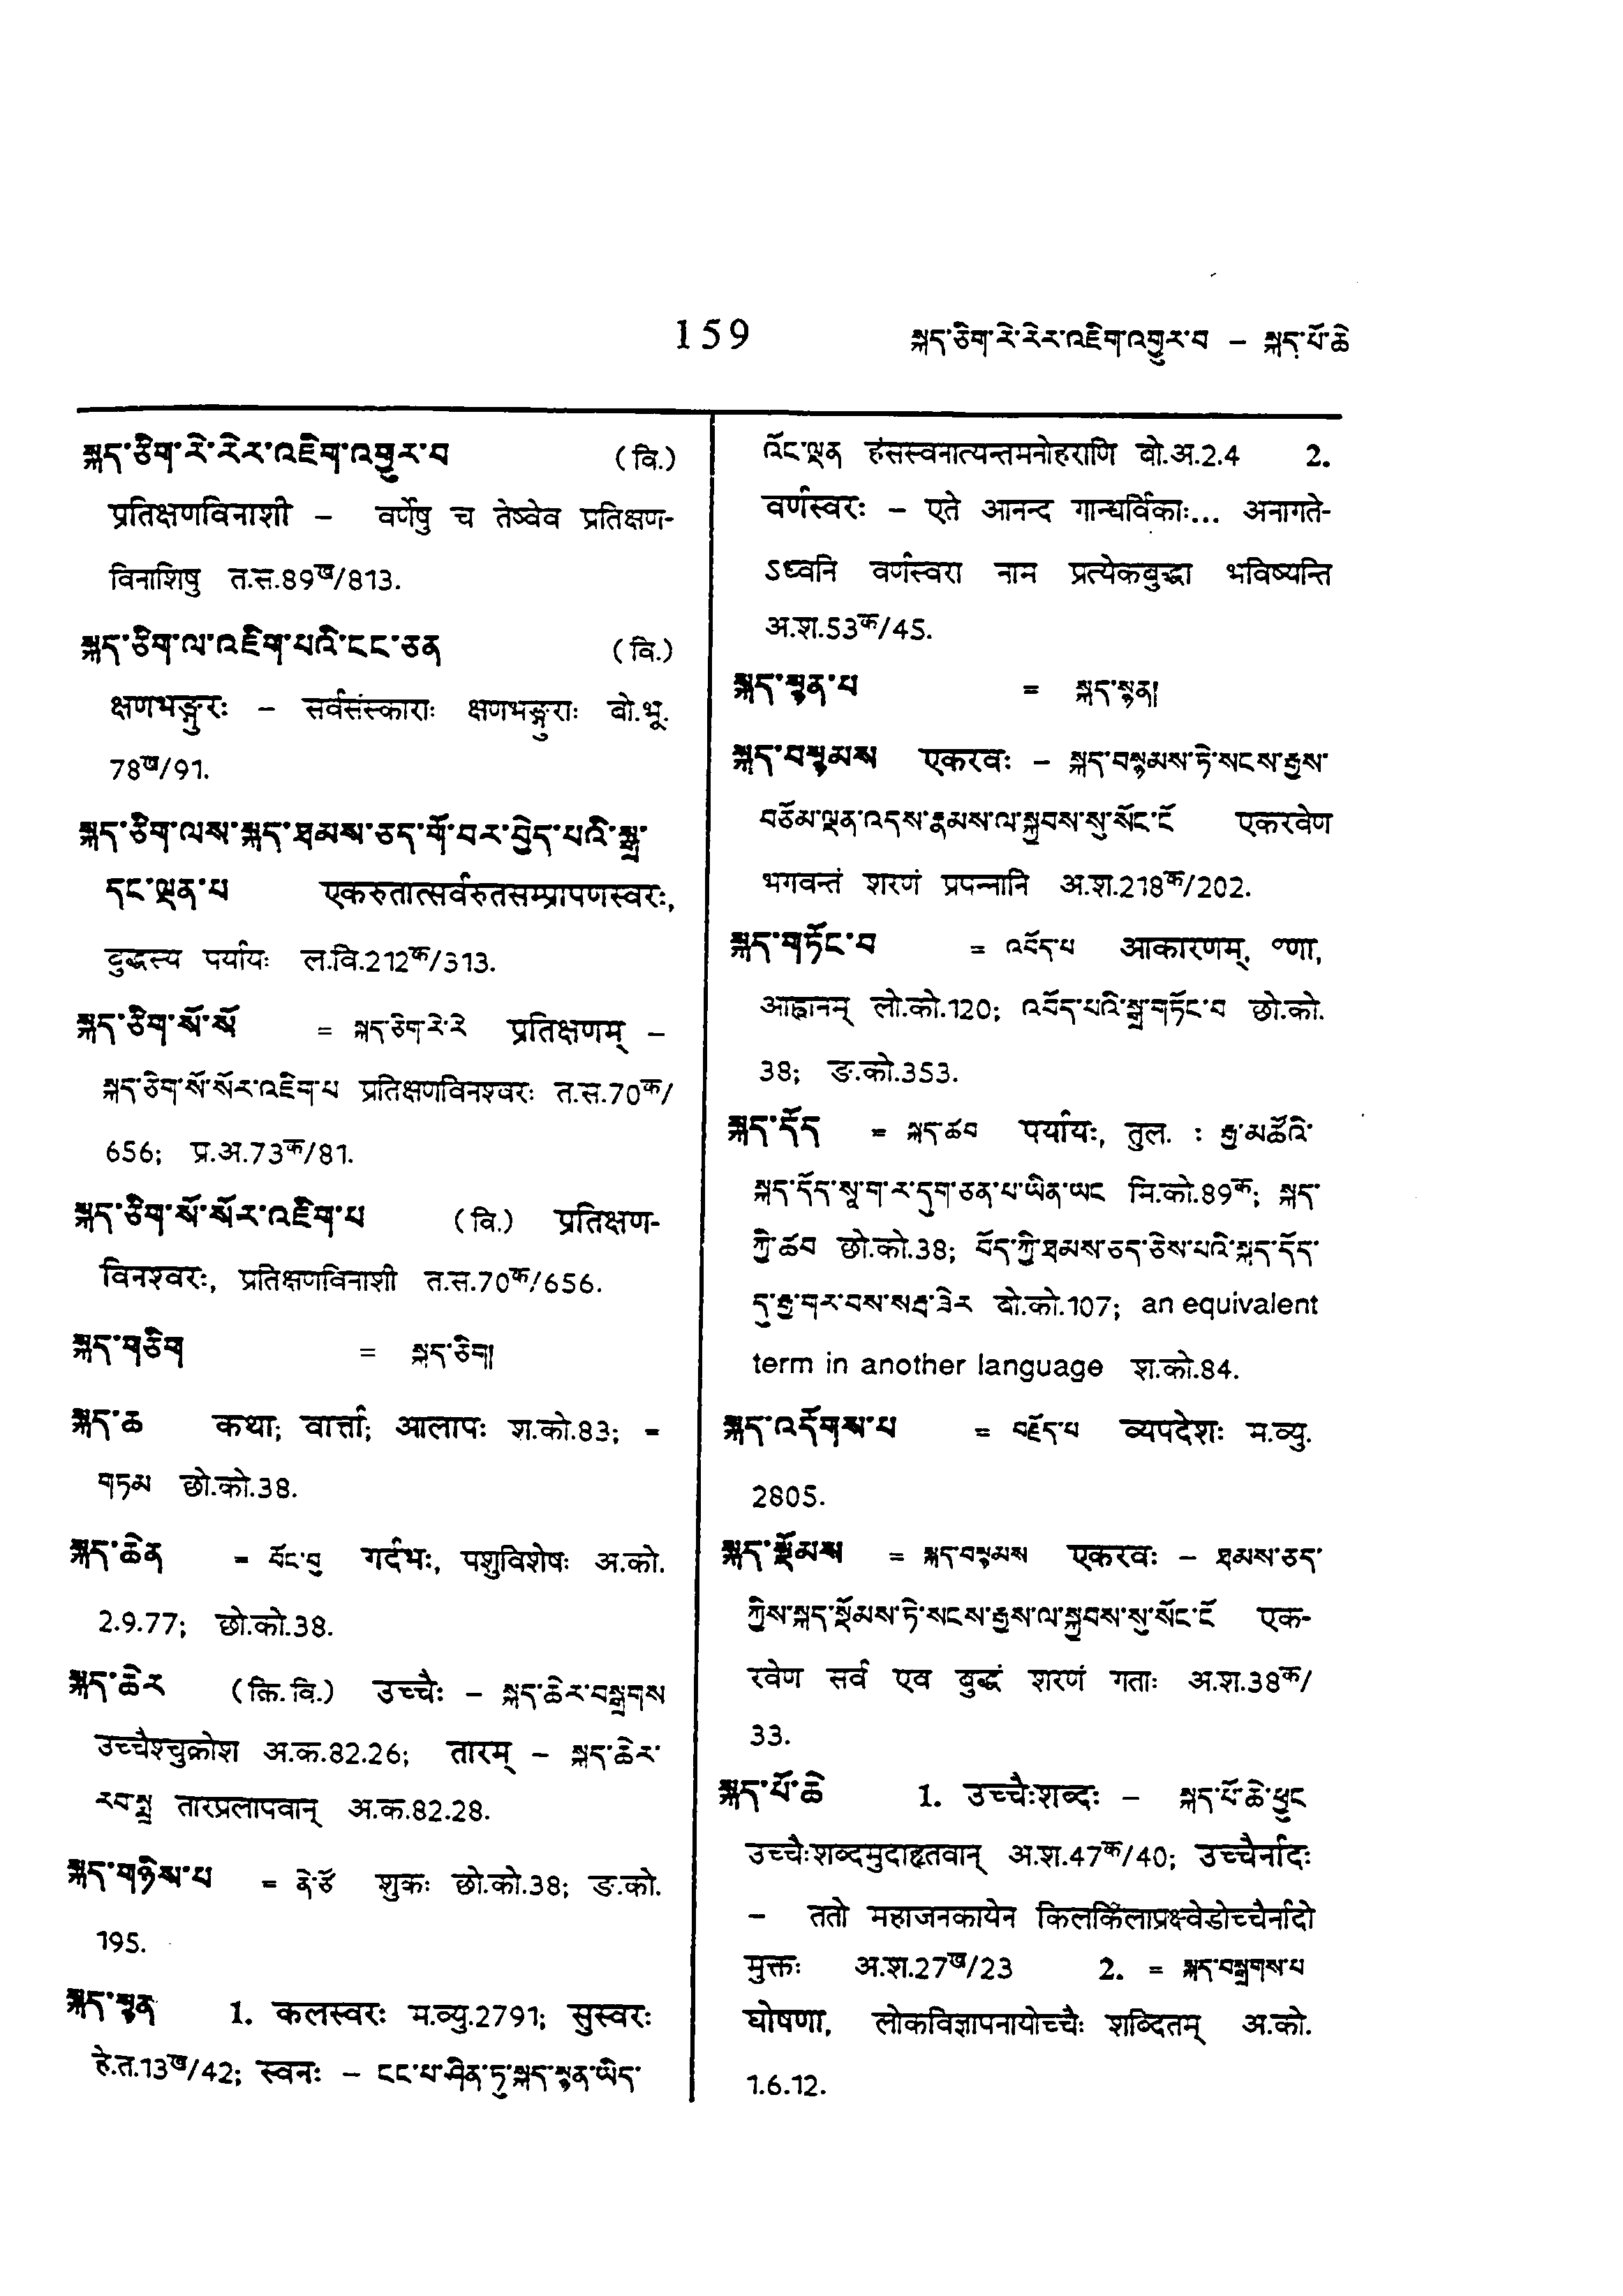 159 སྐད་ཅིག་རེ་རེར་འཇིག་འགྱུར་བ – སྐད་པོ་ཆེ
སྐད་ཅིག་རེ་རེར་འཇིག་འགྱུར་བ (वि.)
प्रतिक्षणविनाशी – वर्णेषु च तेष्वेव प्रतिक्षण-
विनाशिषु त.स.89ख/813.
སྐད་ཅིག་ལ་འཇིག་པའི་ངང་ཅན (वि.)
क्षणभङ्गुरः – सर्वसंस्काराः क्षणभङ्गुराः बो.भू.
78ख/91.
སྐད་ཅིག་ལས་སྐད་ཐམས་ཅད་གོ་བར་བྱེད་པའི་སྒྲ་
དང་ལྡན་པ एकरुतात्सर्वरुतसम्प्रापणस्वरः,
बुद्धस्य पर्यायः ल.वि.212क/313.
སྐད་ཅིག་སོ་སོ = སྐད་ཅིག་རེ་རེ प्रतिक्षणम् –
སྐད་ཅིག་སོ་སོར་འཇིག་པ प्रतिक्षणविनश्वरः त.स.70क/
656; प्र.अ.73क/81.
སྐད་ཅིག་སོ་སོར་འཇིག་པ (वि.) प्रतिक्षण-
विनश्वरः, प्रतिक्षणविनाशी त.स.70क/656.
སྐད་གཅིག = སྐད་ཅིག།
སྐད་ཆ कथा; वार्त्ता; आलापः श.को.83; =
གཏམ छो.को.38.
སྐད་ཆེན = བོང་བུ गर्दभः, पशुविशेषः अ.को.
2.9.77; छो.को.38.
སྐད་ཆེར (क्रि.वि.) उच्चैः – སྐད་ཆེར་བསྒྲགས
उच्चैश्चुक्रोश अ.क.82.26; तारम् – སྐད་ཆེར་
རབ་སྨྲ तारप्रलापवान् अ.क.82.28.
སྐད་གཉིས་པ = ནེ་ཙོ शुकः छो.को.38; ङ.को.
195.
སྐད་སྙན 1. कलस्वरः म.व्यु.2791; सुस्वरः
हे.त.13ख/42; स्वनः – ངང་པ་ཤིན་ཏུ་སྐད་སྙན་ཡིད་
འོང་ལྡན हंसस्वनात्यन्तमनोहराणि बो.अ.2.4 2.
वर्णस्वरः – एते आनन्द गान्धर्विकाः... अनागते-
ऽध्वनि वर्णस्वरा नाम प्रत्येकबुद्धा भविष्यन्ति
अ.श.53क/45.
སྐད་སྙན་པ = སྐད་སྙན།
སྐད་བསྙམས एकरवः – སྐད་བསྙམས་ཏེ་སངས་རྒྱས་
བཅོམ་ལྡན་འདས་རྣམས་ལ་སྐྱབས་སུ་སོང་ངོ एकरवेण
भगवन्तं शरणं प्रपन्नानि अ.श.218क/202.
སྐད་གཏོང་བ = འབོད་པ आकारणम्, ०णा,
आह्वानम् लो.को.120; འབོད་པའི་སྒྲ་གཏོང་བ छो.को.
38; ङ.को.353.
སྐད་དོད = སྐད་ཚབ पर्यायः, तुल. : རྒྱ་མཚོའི་
སྐད་དོད་སཱ་ག་ར་དུག་ཅན་པ་ཡིན་ཡང मि.को.89क; སྐད་
ཀྱི་ཚབ छो.को.38; བོད་ཀྱི་ཐམས་ཅད་ཅེས་པའི་སྐད་དོད་
དུ་རྒྱ་གར་བས་སརྦ་ཟེར बो.को.107; an equivalent
term in another language श.को.84.
སྐད་འདོགས་པ = བརྗོད་པ व्यपदेशः म.व्यु.
2805.
སྐད་སྡོམས = སྐད་བསྙམས एकरवः – ཐམས་ཅད་
ཀྱིས་སྐད་སྡོམས་ཏེ་སངས་རྒྱས་ལ་སྐྱབས་སུ་སོང་ངོ एक-
रवेण सर्व एव बुद्धं शरणं गताः अ.श.38क/
33.
སྐད་པོ་ཆེ 1. उच्चैःशब्दः – སྐད་པོ་ཆེ་ཕྱུང
उच्चैःशब्दमुदाहृतवान् अ.श.47क/40; उच्चैर्नादः
– ततो महाजनकायेन किलकिलाप्रक्ष्वेडोच्चैर्नादो
मुक्तः अ.श.27ख/23 2. = སྐད་བསྒྲགས་པ
घोषणा, लोकविज्ञापनायोच्चैः शब्दितम् अ.को.
1.6.12.